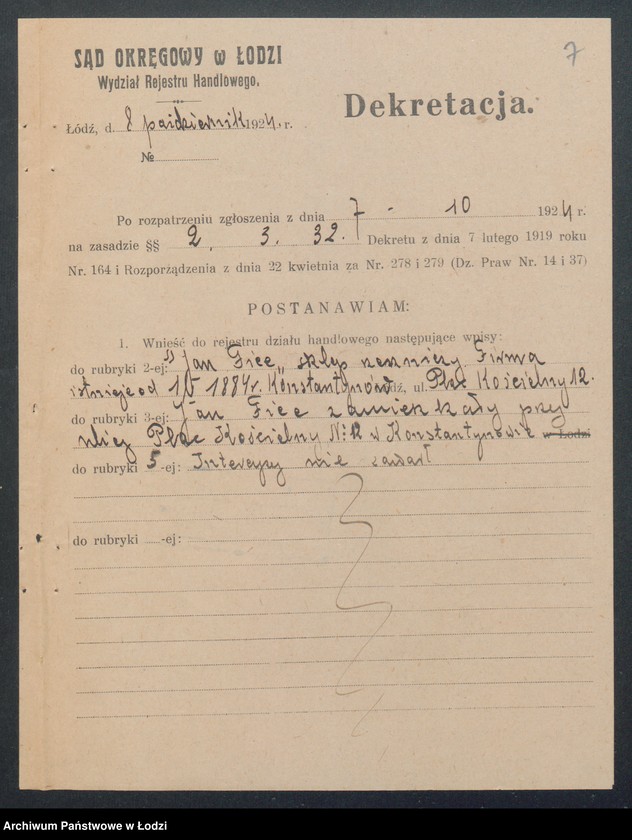 7
SĄD OKRĘGOWY w ŁODZI
Wydział Rejestru Handlowego.
Dekretacja.
Łódź, d. 8 październik 1924, r.
№
Po rozpatrzeniu zgłoszenia z dnia 7 - 10 1924 r.
na zasadzie §§ 2. 3. 32. Dekretu z dnia 7 lutego 1919 roku
Nr. 164 i Rozporządzenia z dnia 22 kwietnia za Nr. 278 i 279 (Dz. Praw Nr. 14 i 37)
POSTANAWIAM:
1. Wnieść do rejestru działu handlowego następujące wpisy:
do rubryki 2-ej: "Jan Fice" sklep rzeźniczy. Firma
istnieje od 1 V 1884 r. Konstantynów dź, ul. Plac Kościelny 12.
do rubryki 3-ej: Jan Fice zamieszkały przy
ulicy Plac Kościelny №: 12 w Konstantynowie w Łodzi
do rubryki 5-ej: Intercyzy nie zawarł
do rubryki -ej:
Archiwum Państwowe w Łodzi